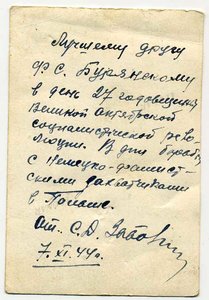 Лучшему другу
Ф С. Бурянскому
в день 27 годовщины
Великой Октябрьской
социалистической рево-
люции. В дни борьбы
с немецко-фашист-
скими захватчиками
в Польше.
От. С.Д.
7.XI.44г.